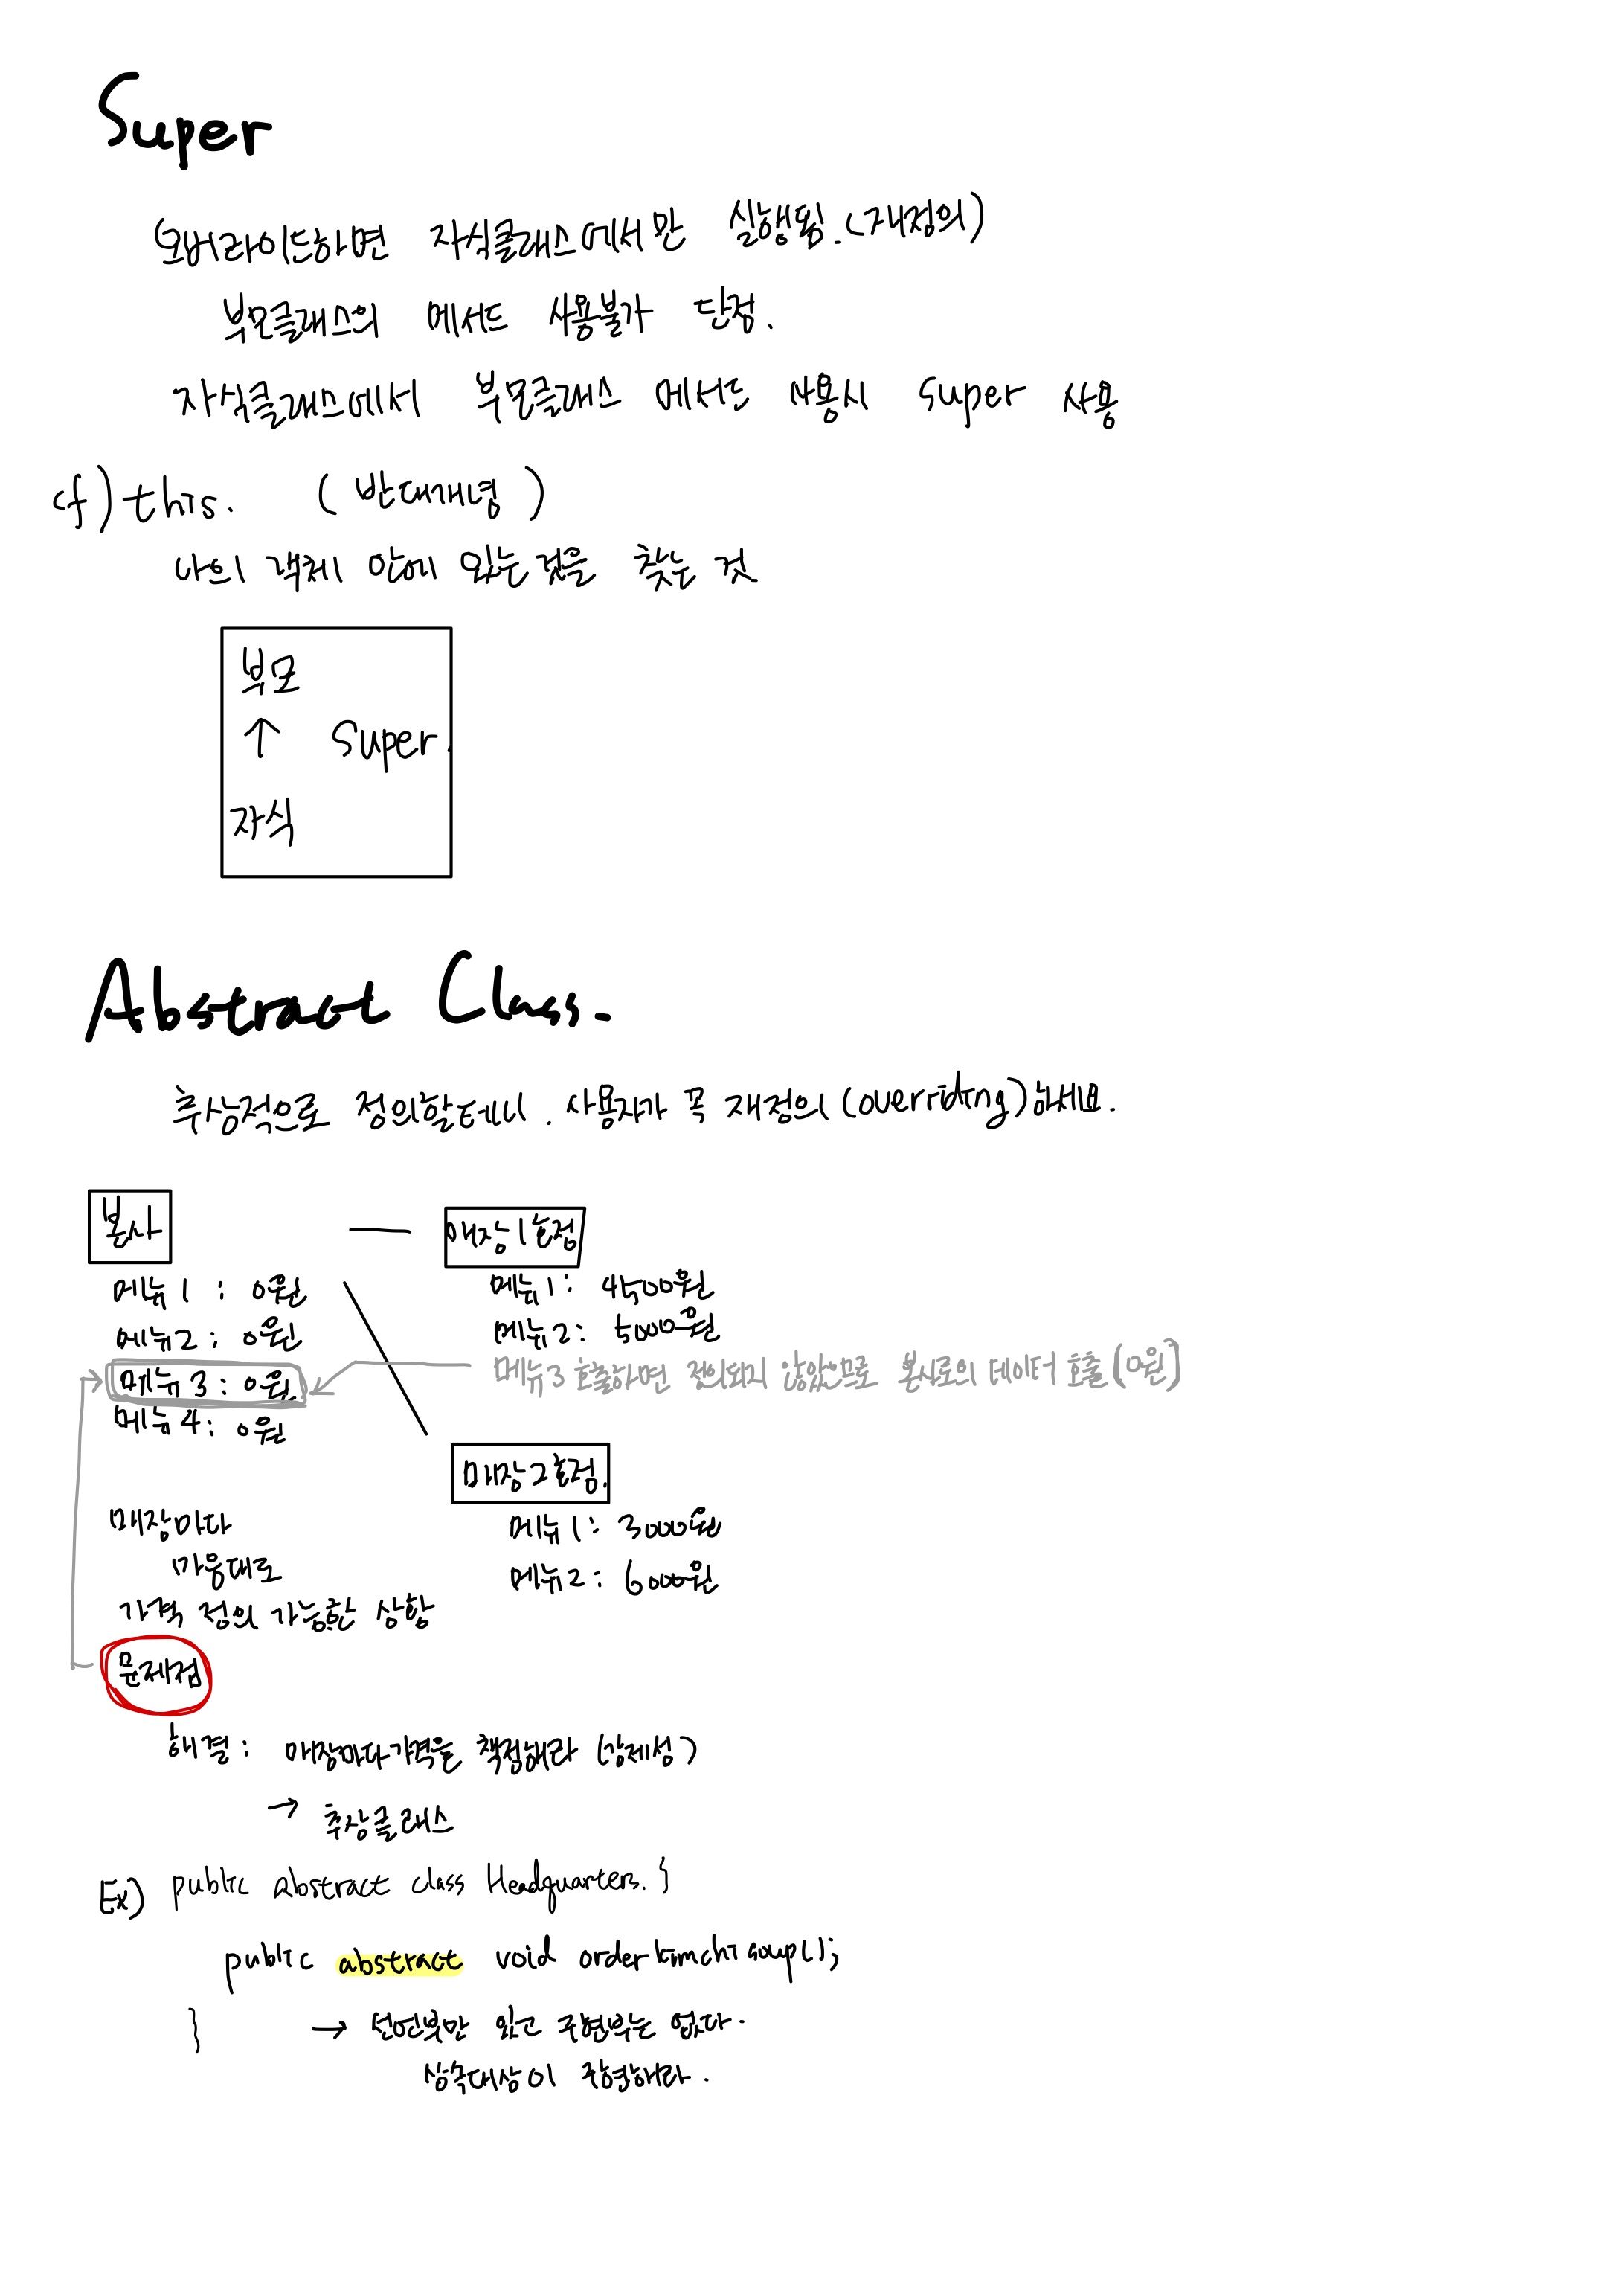 Super
오버라이드하면 자식클래스에서만 실행됨.(재정의)
부모클래스의 메서드 사용불가 단점.
자식클래스에서 부모클래스 메서드 사용시 super 사용
cf) this. (반대개념)
나의 객체 안에 있는것을 찾는 것.
부모
↑ super.
자식
Abstract Class.
추상적으로 정의할테니. 사용자가 꼭 재정의(overriding)하세요.
본사
메뉴1 : 0원
메뉴2 : 0원
메뉴3 : 0원
메뉴4 : 0원
매장1호점
메뉴1 : 4500원
메뉴2 : 5000원
메뉴3 호출하면 정의되지 않았으므로 본사로의 데이터 호출(0원)
매장2호점.
메뉴1 : 3000원
메뉴2 : 6000원
매장마다
마음대로
가격 정의 가능한 상황
문제점
해결 : 매장마다 가격을 책정해라 (강제성)
→ 추상클래스
Ex) public Abstract class Headquarters. }
public abstract void orderkimchisoup();
} → 선언부만 있고 구현부는 없다.
상속대상이 구현해라.